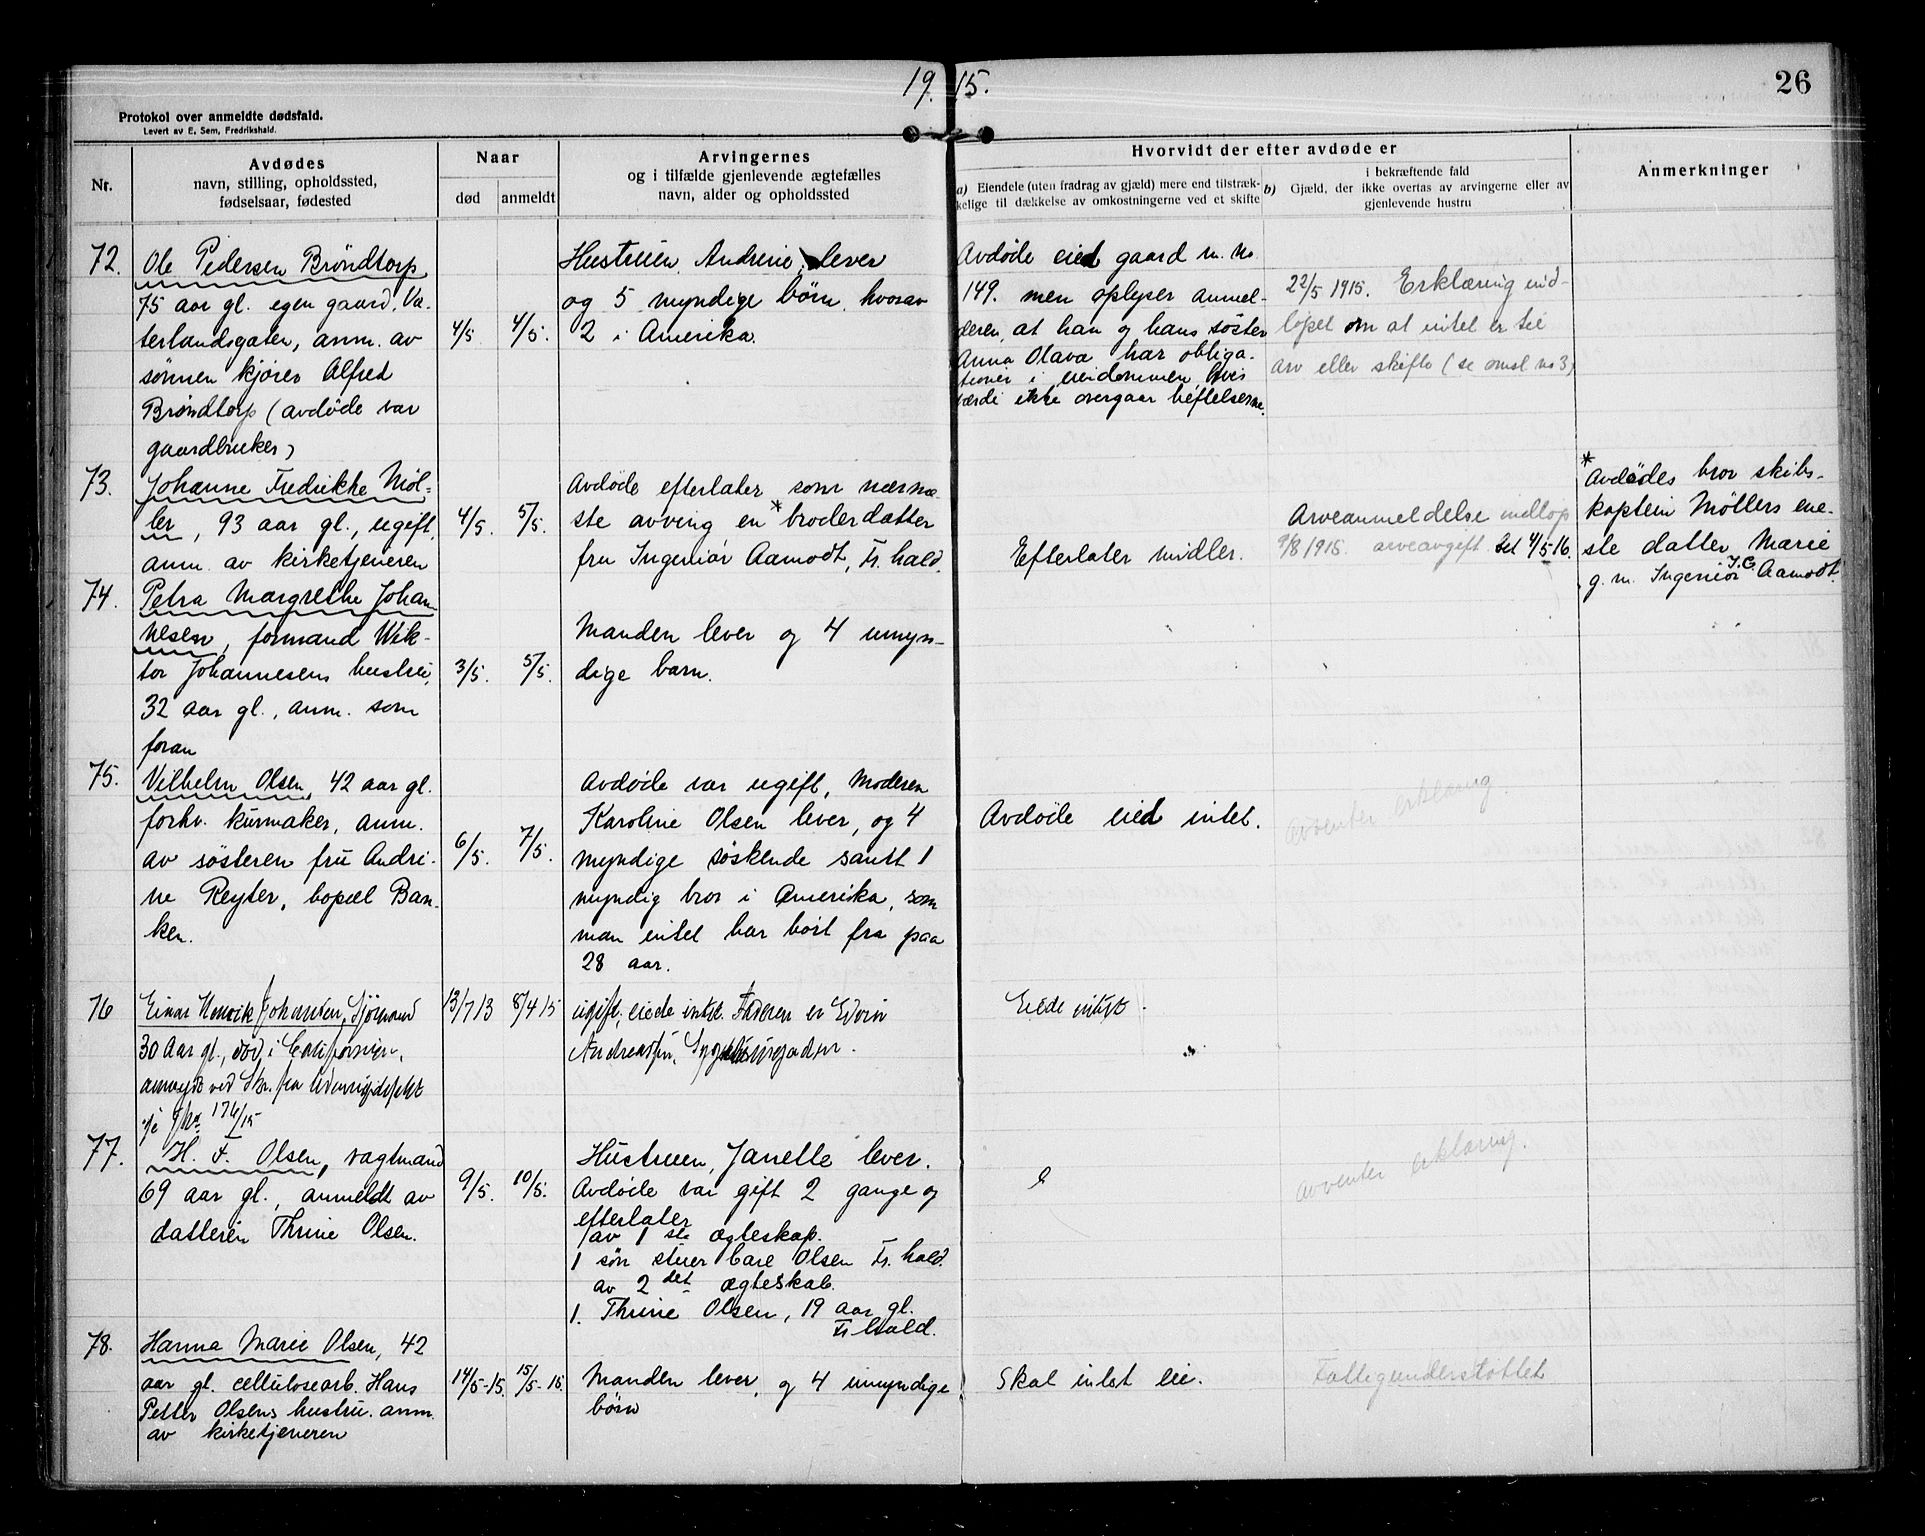 19.15.
26
Protokol over anmeldte dødsfald.
Levert av E, Sem, Fredrikshald.
Nr.
Avdødes
navn, stilling, opholdssted,
fødselsaar, fødested
Naar
død
anmeldt
Arvingernes
og i tilfælde gjenlevende ægtefælles
navn, alder og opholdssted
Hvorvidt der efter avdøde er
a) Eiendele (uten fradrag av gjæld) mere end tilstræk-
kelige til dækkelse av omkostningerne ved et skifte
i bekræftende fald
b) Gjæld, der ikke overtas av arvingerne eller av
gjenlevende hustru
Anmerkninger
72.
Ole Pedersen Brøndtorp
75 aar gl. egen gaard, Va-
terlandsgaten, anm. av
sønnen kjører Alfred
Brøndtorp (avdøde var
gaardbruker)
4/5
4/5.
Hustruen, Andrine, lever
og 5 myndige børn, hvorav
2 i Amerika.
Avdøde eied gaard m. No
149. men oplyser anmel-
deren, at han og hans søster
Anna Olava har obliga-
tioner i eiendommen, hvis
værdi ikke overgaar heftelserne.
22/5 1915. Erklæring ind-
løpet om at intet er til
arv eller skifte (se omsl no 3)
73.
Johanne Fredrikke Møl-
ler, 93 aar gl., ugift,
anm. av kirketjeneren
4/5.
5/5.
Avdøde efterlater som nærme-
ste arving en * broderdatter
fru Ingeniør Aamodt, Fr. hald.
Efterlater midler.
Arveanmeldelse indløp
9/8 1915. arveavgift bet 4/5 16.
* Avdødes bror skibs-
kaptein Møllers ene-
ste datter Marie
g. m. Ingeniør J.C. Aamodt.
74.
Petra Margrethe Johan-
nesen, formand Wik-
tor Johannesens hustru,
32 aar gl., anm. som
foran
3/5.
5/5.
Manden lever og 4 umyn-
dige barn.
75.
Vilhelm Olsen, 42 aar gl.
forhv. kurmaker, anm.
av søsteren fru Andri-
ne Reyter, bopæl Ban-
ken.
6/5.
7/5.
Avdøde var ugift, Moderen
Karoline Olsen lever, og 4
myndige søskende samt 1
myndig bror i Amerika, som
man intet har hørt fra paa
28 aar.
Avdøde eied intet.
Avventer erklæring.
76
Einar Henrik Johansen, Sjømand
30 Aar gl., død i Californien,
anmeldt ved Skr. fra
176/15
13/7 13
8/4 15
ugift, eiede intet. Faderen er Edvin
Andreassen,
Eiede intet.
77.
H. F. Olsen, vagtmand
69 aar gl., anmeldt av
datteren Thrine Olsen.
9/5.
10/5.
Hustruen, Janette lever.
Avdøde var gift 2 gange og
efterlater
av 1ste ægteskap.
1 søn stuer Care Olsen Fr. hald.
av 2det ægteskab.
1. Thrine Olsen, 19 aar gl.
Fr hald.
Avventer erklæring.
78.
Hanna Marie Olsen, 42
aar gl. cellulosearb. Hans
Petter Olsens hustru. anm.
av kirketjeneren
14/5-15.
15/5-15.
Manden lever, og 4 umyndige
børn
Skal intet eie.
Fattigunderstøttet